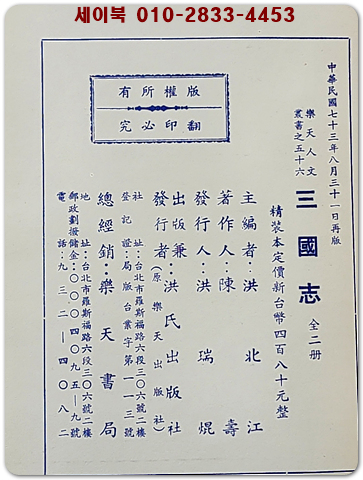 세이북 010-2833-4453
中華民國七十三年八月三十一日再版
樂天人文
叢書之五十六
三國志 全二册
精裝本定價新台幣四百八十元整
主編者：洪北江
著作人：陳壽
發行人：洪瑞焜
出版兼
發行者：洪氏出版社
（原樂天出版社）
社址：台北市羅斯福路六段三〇六號二樓
登記證：局版台業字第一一三號
總經銷：樂天書局
地址：台北市羅斯福路六段三〇六號二樓
郵政劃撥儲金：〇〇〇四〇九五—九號
電話：九三二—四〇八二
版權所有
翻印必究